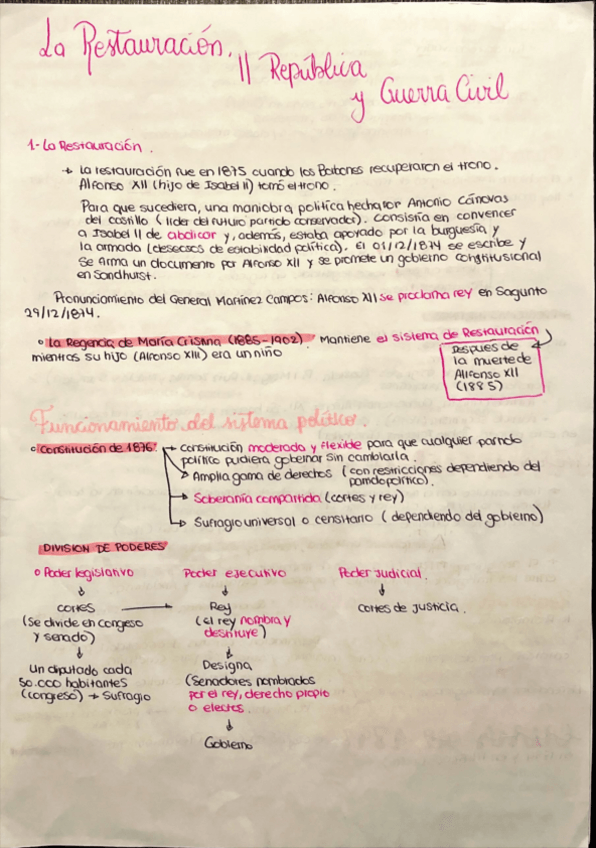 La Restauración,
II República
y Guerra Civil
1- La Restauración.
→ La restauración fue en 1875 cuando los Borbones recuperaron el trono.
Alfonso XII (hijo de Isabel II) tomó el trono.
Para que sucediera, una maniobra política hecha por Antonio Cánovas
del castillo (líder del futuro partido conservador). Consistía en convencer
a Isabel II de abdicar y, además, estaba apoyado por la burguesía y
la armada (deseosos de estabilidad política). El 01/12/1874 se escribe y
se firma un documento por Alfonso XII y se promete un gobierno constitusional
en Sandhurst.
Pronunciamiento del General Martínez Campos: Alfonso XII se proclama rey en Sagunto
29/12/1874.
o La Regencia de María Cristina (1885-1902). Mantiene el sistema de Restauración
mientras su hijo (Alfonso XIII) era un niño
Después de
la muerte de
Alfonso XII
(1885)
Funcionamiento del sistema político.
o Constitución de 1876: → Constitución moderada y flexible para que cualquier partido
político pudiera gobernar sin cambiarla.
→ Amplia gama de derechos (con restricciones dependiendo del
partido político).
→ Soberanía compartida (cortes y rey)
→ Sufragio universal o censitario (dependiendo del gobierno)
DIVISION DE PODERES
o Poder legislativo Poder ejecutivo Poder Judicial.
↓ ↓ ↓
cortes → Rey cortes de justicia.
(Se divide en congreso (el rey nombra y
y senado) destituye)
↓ ↓
Un diputado cada Designa
50.000 habitantes (Senadores nombrados
(congreso) → Sufragio por el rey, derecho propio
o electos.
↓
Gobierno